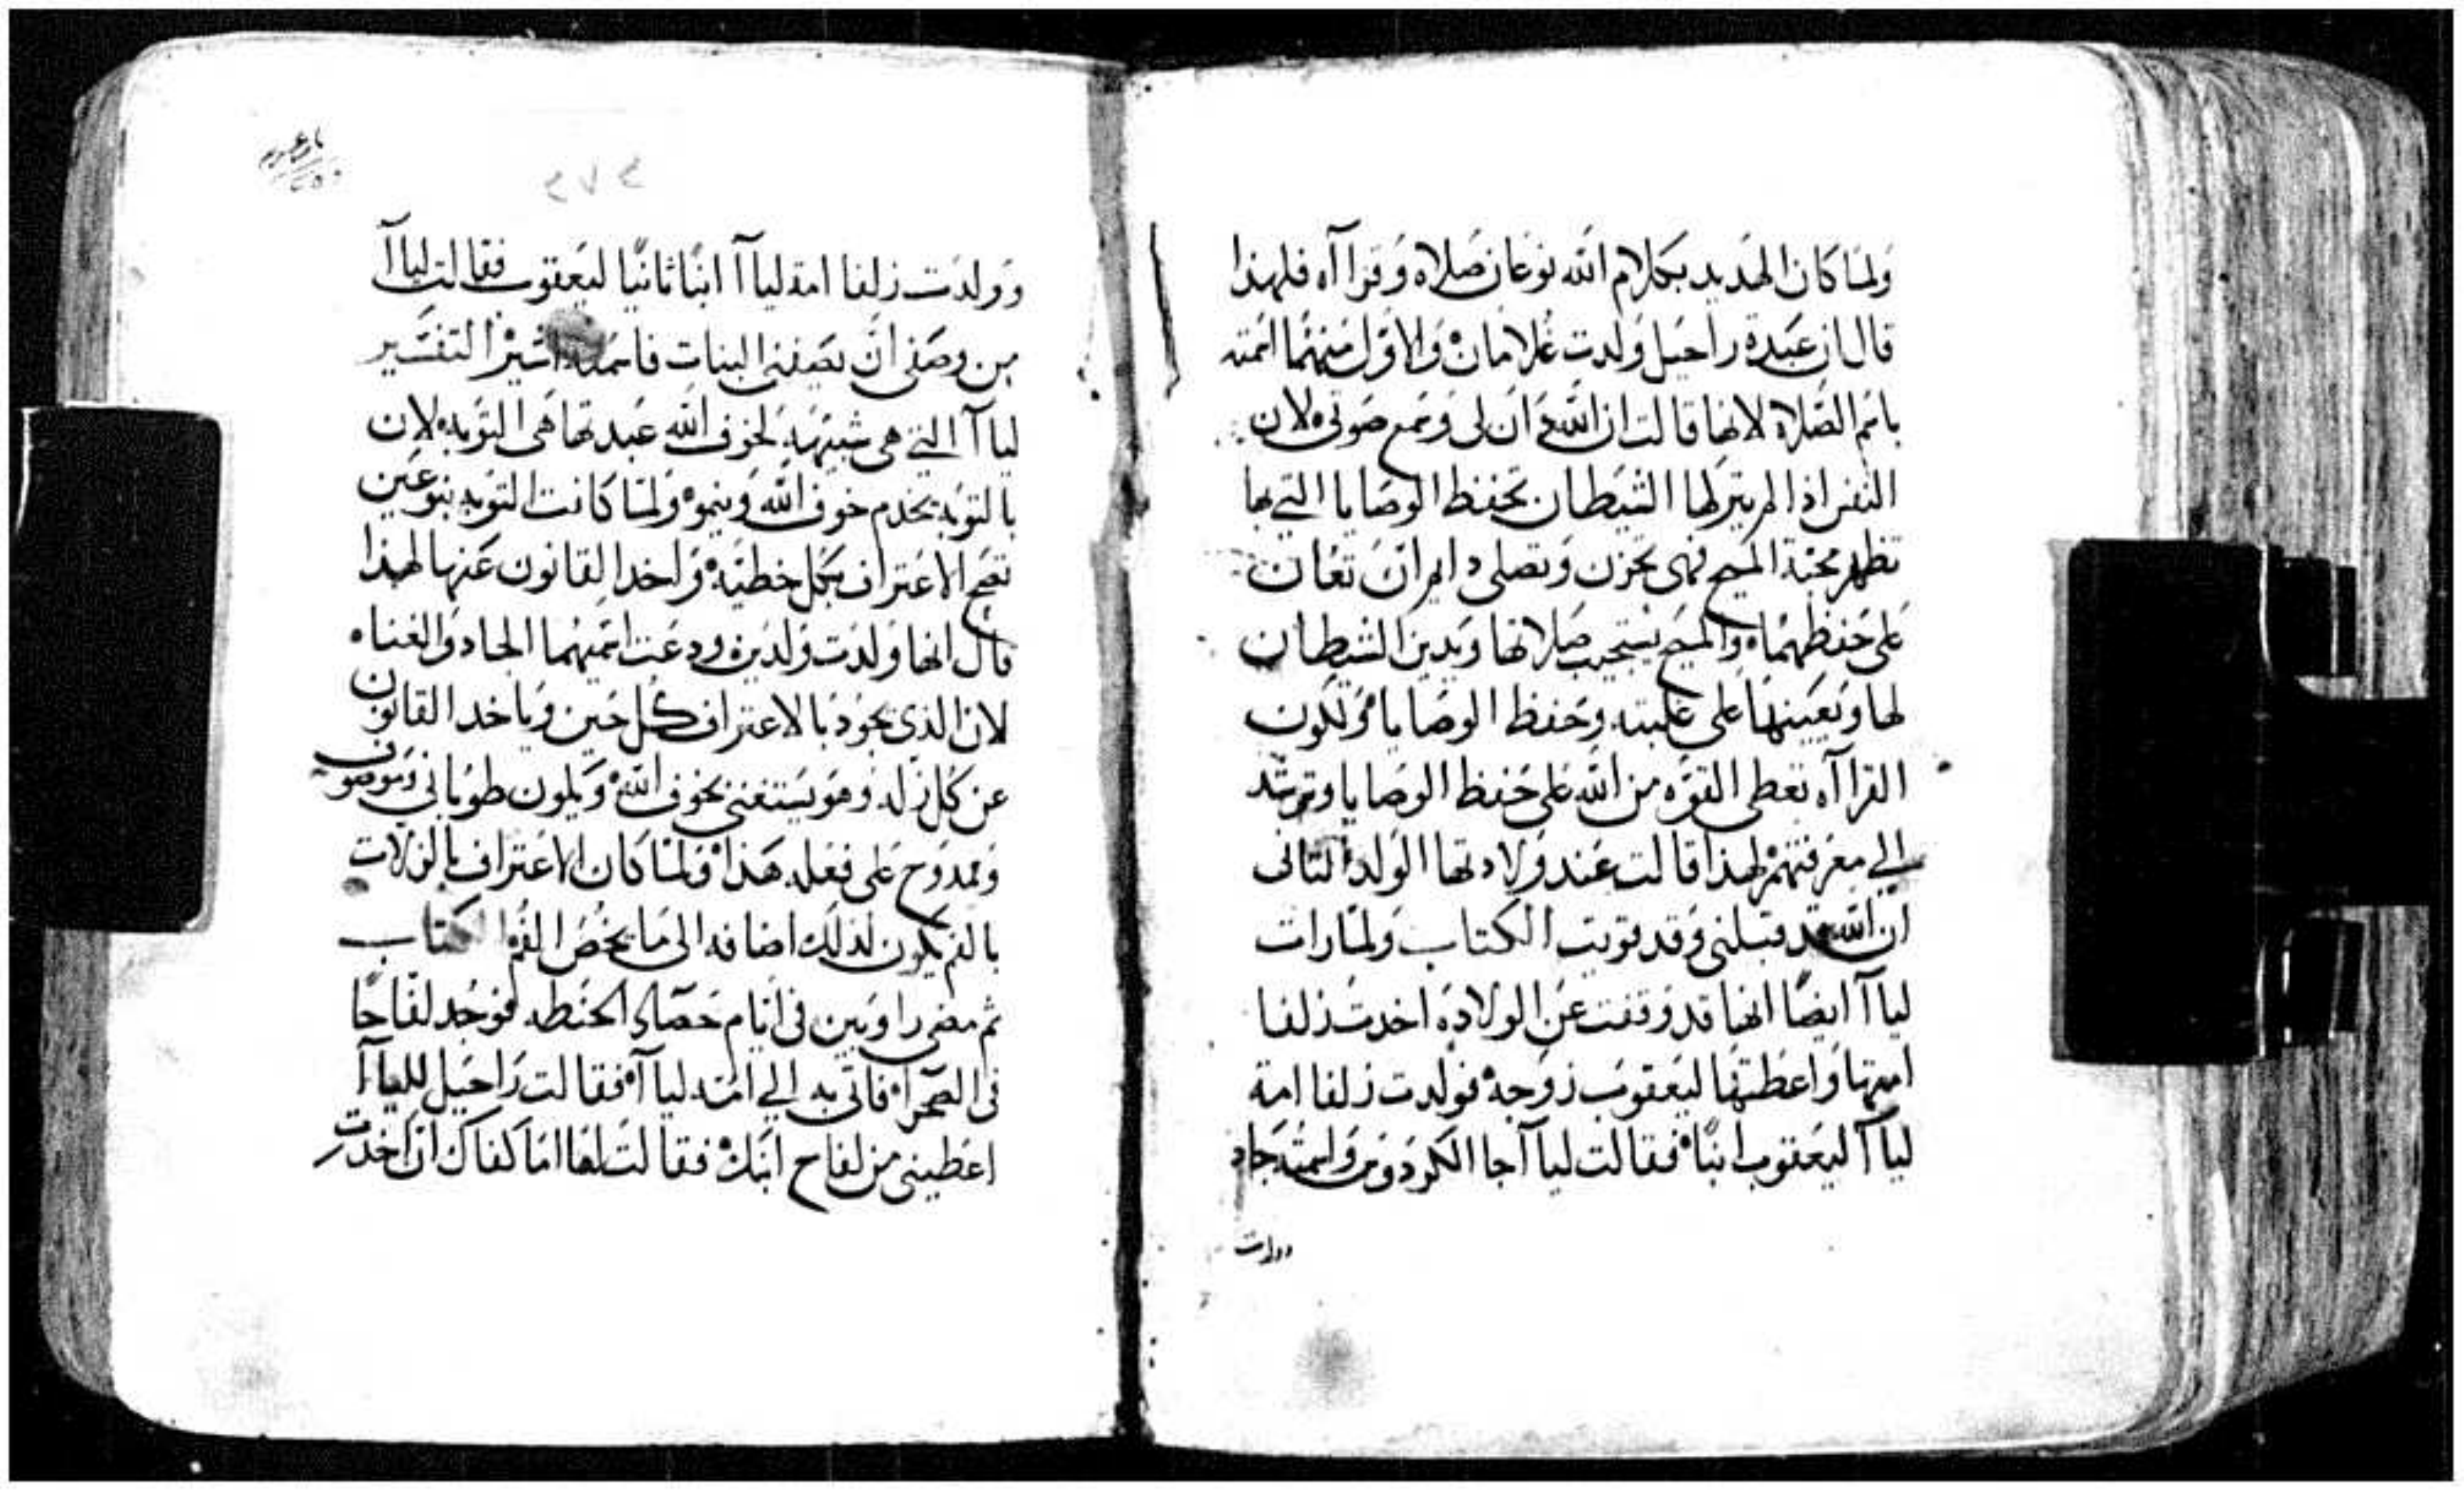 ولما كان الهديد بكلام الله نوعان صلاه وقراآه فلهذا
قال ان عبدة راحيل ولدت غلامان والاول منهما اسمته
باسم الصلاة لانها قالت ان الله دان لى وسمع صوتى لان
النفس اذا لم يترلها الشيطان تحفظ الوصايا التي بها
تظهر محبة المسيح فهى تحزن وتصلى دايما ان تعان
على حفظهما والمسيح يستجيب صلاتها ويدين الشيطان
لها ويعينها على غلبته وحفظ الوصايا وتكون
القراآه تعطى القوه من الله على حفظ الوصايا وترشد
الي معرفتهم لهذا قالت عند ولادتها الولد التانى
ان الله قد قبلنى وقد قويت الكتاب ولما رات
لياآ ايضا انها قد وقفت عن الولادة اخدت زلفا
امتها واعطتها ليعقوب زوجه فولدت زلفا امة
لياآ ليعقوب ابنًا فقالت لياآ جا الكردوس واسمته جاد
وولدت
٢٧٤
وولدت زلفا امة لياآ ابنًا ثانيًا ليعقوب فقالت لياآ
من وصفى ان يصفننى البنات فاسمته اشير التفسير
لياآ التي هى شبيهه لخوف الله عبدتها هى التوبه لان
بالتوبه يخدم خوف الله وينمو ولما كانت التوبه بنوعين
تصح الاعتراف بكل خطيه واخد القانون عنها لهذا
قال انها ولدت ولدين ودعت اسميهما الجاد والغناه
لان الذى يجود بالاعتراف كل حين وياخد القانون
عن كل زله وهو يستغنى بخوف الله ويكون طوبانى وموصوف
وممدوح على فعله هذا ولما كان الاعتراف بالزلات
بالفم يكون لذلك اضافه الى ما يخص الفم الكتاب
ثم مضى راوبين فى ايام حصاد الحنطه فوجد لفاحًا
فى الصحرا فاتى به الي امه لياآ فقالت راحيل للياآ
اعطينى من لفاح ابنك فقالت لها اما كفاك ان اخدت